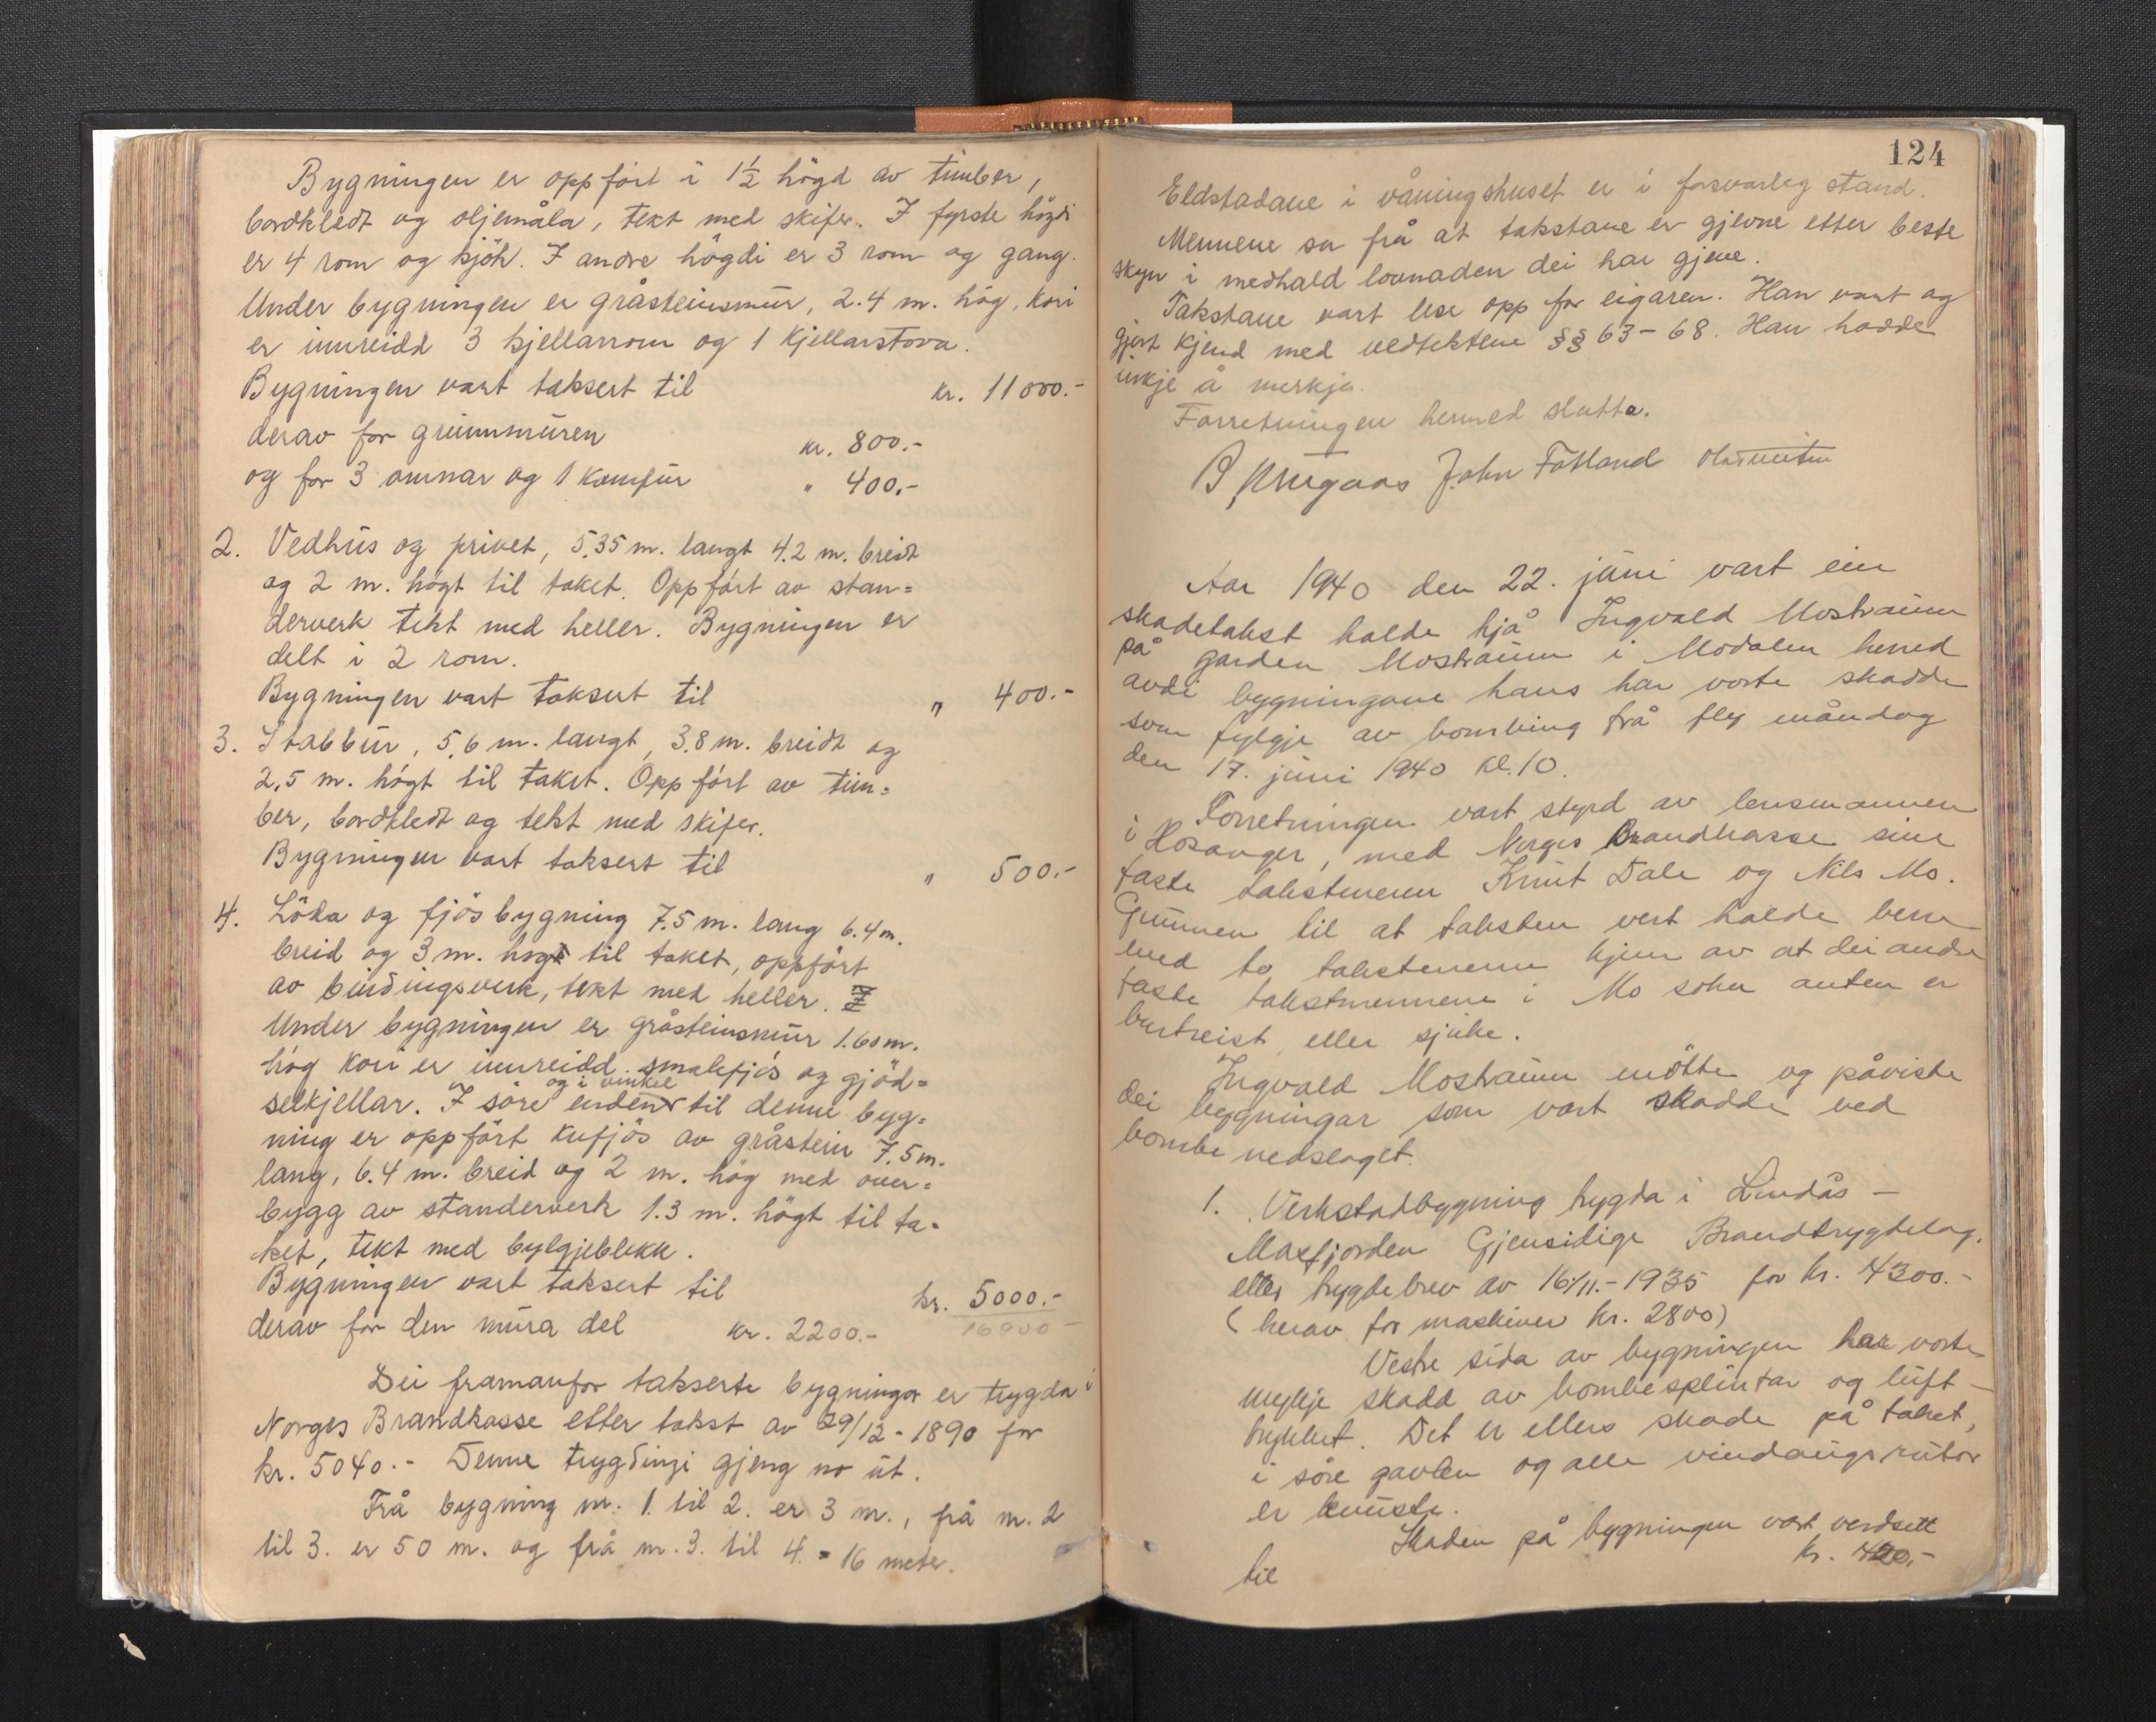 Bygningen er oppført i 1½ högd av timber,
bordkledt og oljemåla, tekt med skifer. I fyrste högdi
er 4 rom og kjök. I andre högdi er 3 rom og gang.
Under bygningen er gråsteinsmur, 2.4 m. høg, kori
er innreidd 3 kjellarrom og 1 kjellarstova.
Bygningen vart taksert til kr. 11000.-
derav for grunnmuren kr. 800.-
og for 3 omnar og 1 komfur " 400.-
2. Vedhus og privet, 5.35 m. langt 4.2 m. breidt
og 2 m. högt til taket. Oppfört av stan=
derverk tekt med heller. Bygningen er
delt i 2 rom.
Bygningen vart taksert til " 400.-
3. Stabbur, 5.6 m. langt, 3.8 m. breidt og
2.5 m. högt til taket. Oppfört av tim=
ber, bordkledt og tekt med skifer.
Bygningen vart taksert til " 500.-
4. Löda og fjösbygning 7.5 m. lang 6.4 m.
breid og 3 m. høg til taket, oppfört
av bindingsverk, tekt med heller.
Under bygningen er gråsteinsmur 1.60 m.
høg kori er innreidd smalefjös og gjöd=
selkjellar. I søre enden og i vinkel til denne byg=
ning er oppfört kufjös av gråstein 7.5 m.
lang, 6.4 m. breid og 2 m. høg med over=
bygg av standerverk 1.3 m. högt til ta=
ket, tekt med bylgjeblekk.
Bygningen vart taksert til kr. 5000.-
derav for den mura del kr. 2200.- 16900 -
Dei framanfor takserte bygningar er trygda i
Norges Brandkasse etter takst av 29/12 - 1890 for
kr. 5040.- Denne trygdingi gjeng no ut.
Frå bygning nr. 1. til 2. er 3 m., frå nr. 2
til 3. er 50 m. og frå nr. 3. til 4. = 16 meter.
124
Eldstadane i våningshuset er i forsvarleg stand.
Mennene sa frå at takstane er gjevne etter beste
skyn i medhald lovnaden dei har gjeve.
Takstane vart lese opp for eigaren. Han vart og
gjort kjend med vedtektene §§ 63-68. Han hadde
inkje å merkja.
Forretningen hermed slutta.
John Fatland
Aar 1940 den 22. juni vart ein
skadetakst halde hjå Ingvald Mostraum
på garden Mostraum i Modalen herad
avdi bygningane hans har vorte skadde
som fylgje av bombing frå fly måndag
den 17. juni 1940 kl. 10.
Forretningen vart styrd av lensmannen
i Hosanger, med Norges Brandkasse sine
faste takstmenn Knut Dale og Nils Mo.
Grunnen til at taksten vert halde berre
med to takstmenn kjem av at dei andre
faste takstmennene i Mo sokn anten er
burtreist eller sjuke.
Ingvald Mostraum møtte og påviste
dei bygningar som vart skadde ved
bombenedslaget.
1. Verkstadbygning trygda i Lindås -
Masfjorden Gjensidige Brandtrygdelag.
etter trygdebrev av 16/11.- 1935 for kr. 4300.-
(herav for maskiner kr. 2800)
Vestre sida av bygningen har vorte
mykje skadd av bombesplintar og luft-
trykket. Det er ellers skade på taket,
i søre gavlen og alle vindaugsrutor
er knuste.
Skaden på bygningen vart verdsett
til kr. 400.-